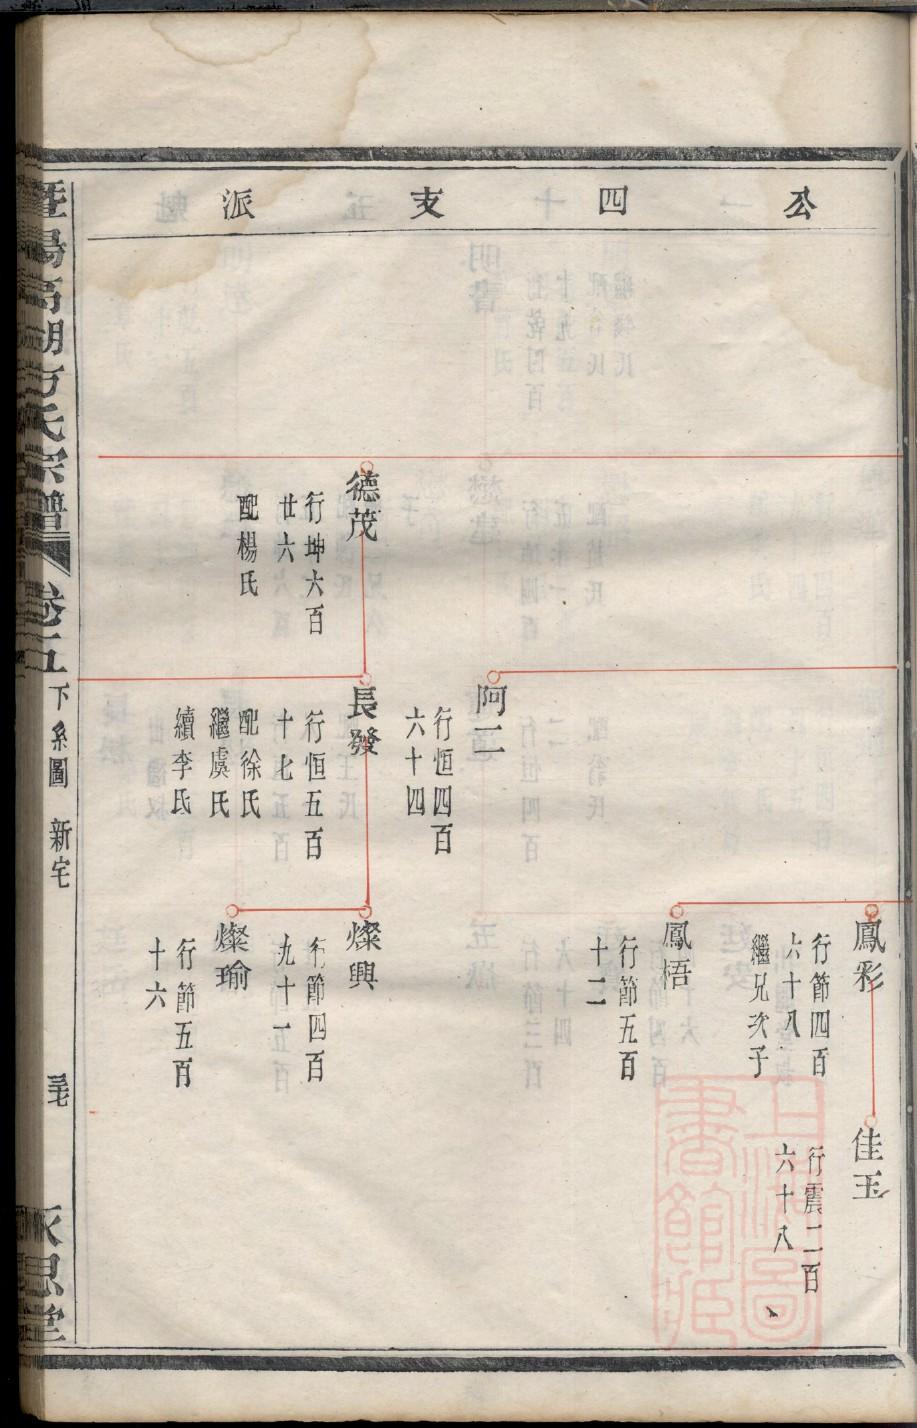 公四支派
鳳彩
行節四百
六十八
繼兄次子
佳玉
行震二百
六十八
鳳梧
行節五百
十二
阿三
行恒四百
六十四
德茂
行坤六百
廿六
配楊氏
長發
行恒五百
十七
配徐氏
繼虞氏
續李氏
燦興
行節四百
九十一
燦瑜
行節五百
十六
暨陽高湖方氏宗譜
卷五
下系圖
新宅
永思堂
上海圖書館藏